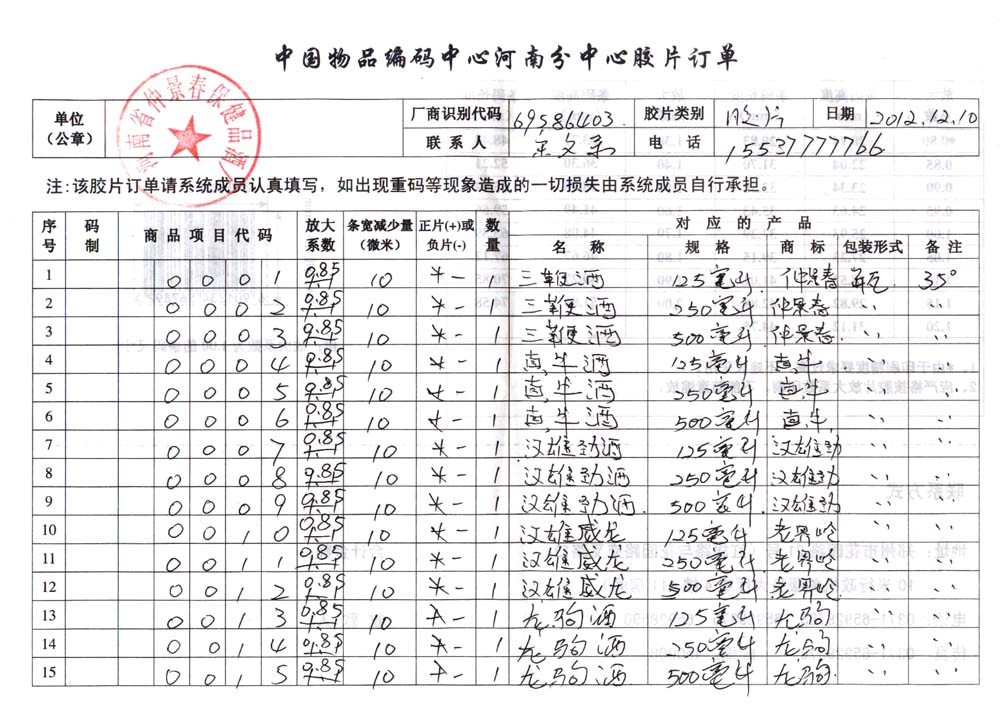 中国物品编码中心河南分中心胶片订单
单位（公章） 厂商识别代码 69586403. 胶片类别 胶片 日期 2012.12.10
联系人 宋文录 电话 15537777766
河南省仲景春保健品酒厂
注:该胶片订单请系统成员认真填写，如出现重码等现象造成的一切损失由系统成员自行承担。
序号 码制 商品项目代码 放大系数 条宽减少量(微米) 正片(+)或负片(-) 数量 对应的产品
名称 规格 商标 包装形式 备注
1 0001 0.85 10 - 1 三鞭酒 125毫升 仲景春 瓶 35°
2 0002 0.85 10 - 1 三鞭酒 250毫升 仲景春 〃 〃
3 0003 0.85 10 - 1 三鞭酒 500毫升 仲景春 〃 〃
4 0004 0.85 10 - 1 卤牛酒 125毫升 卤牛 〃 〃
5 0005 0.85 10 - 1 卤牛酒 250毫升 卤牛 〃 〃
6 0006 0.85 10 - 1 卤牛酒 500毫升 卤牛 〃 〃
7 0007 0.85 10 - 1 汉雄劲酒 125毫升 汉雄劲 〃 〃
8 0008 0.85 10 - 1 汉雄劲酒 250毫升 汉雄劲 〃 〃
9 0009 0.85 10 - 1 汉雄劲酒 500毫升 汉雄劲 〃 〃
10 0010 0.85 10 - 1 汉雄威龙 125毫升 老界岭 〃 〃
11 0011 0.85 10 - 1 汉雄威龙 250毫升 老界岭 〃 〃
12 0012 0.85 10 - 1 汉雄威龙 500毫升 老界岭 〃 〃
13 0013 0.85 10 - 1 龙驹酒 125毫升 龙驹 〃 〃
14 0014 0.85 10 - 1 龙驹酒 250毫升 龙驹 〃 〃
15 0015 0.85 10 - 1 龙驹酒 500毫升 龙驹 〃 〃